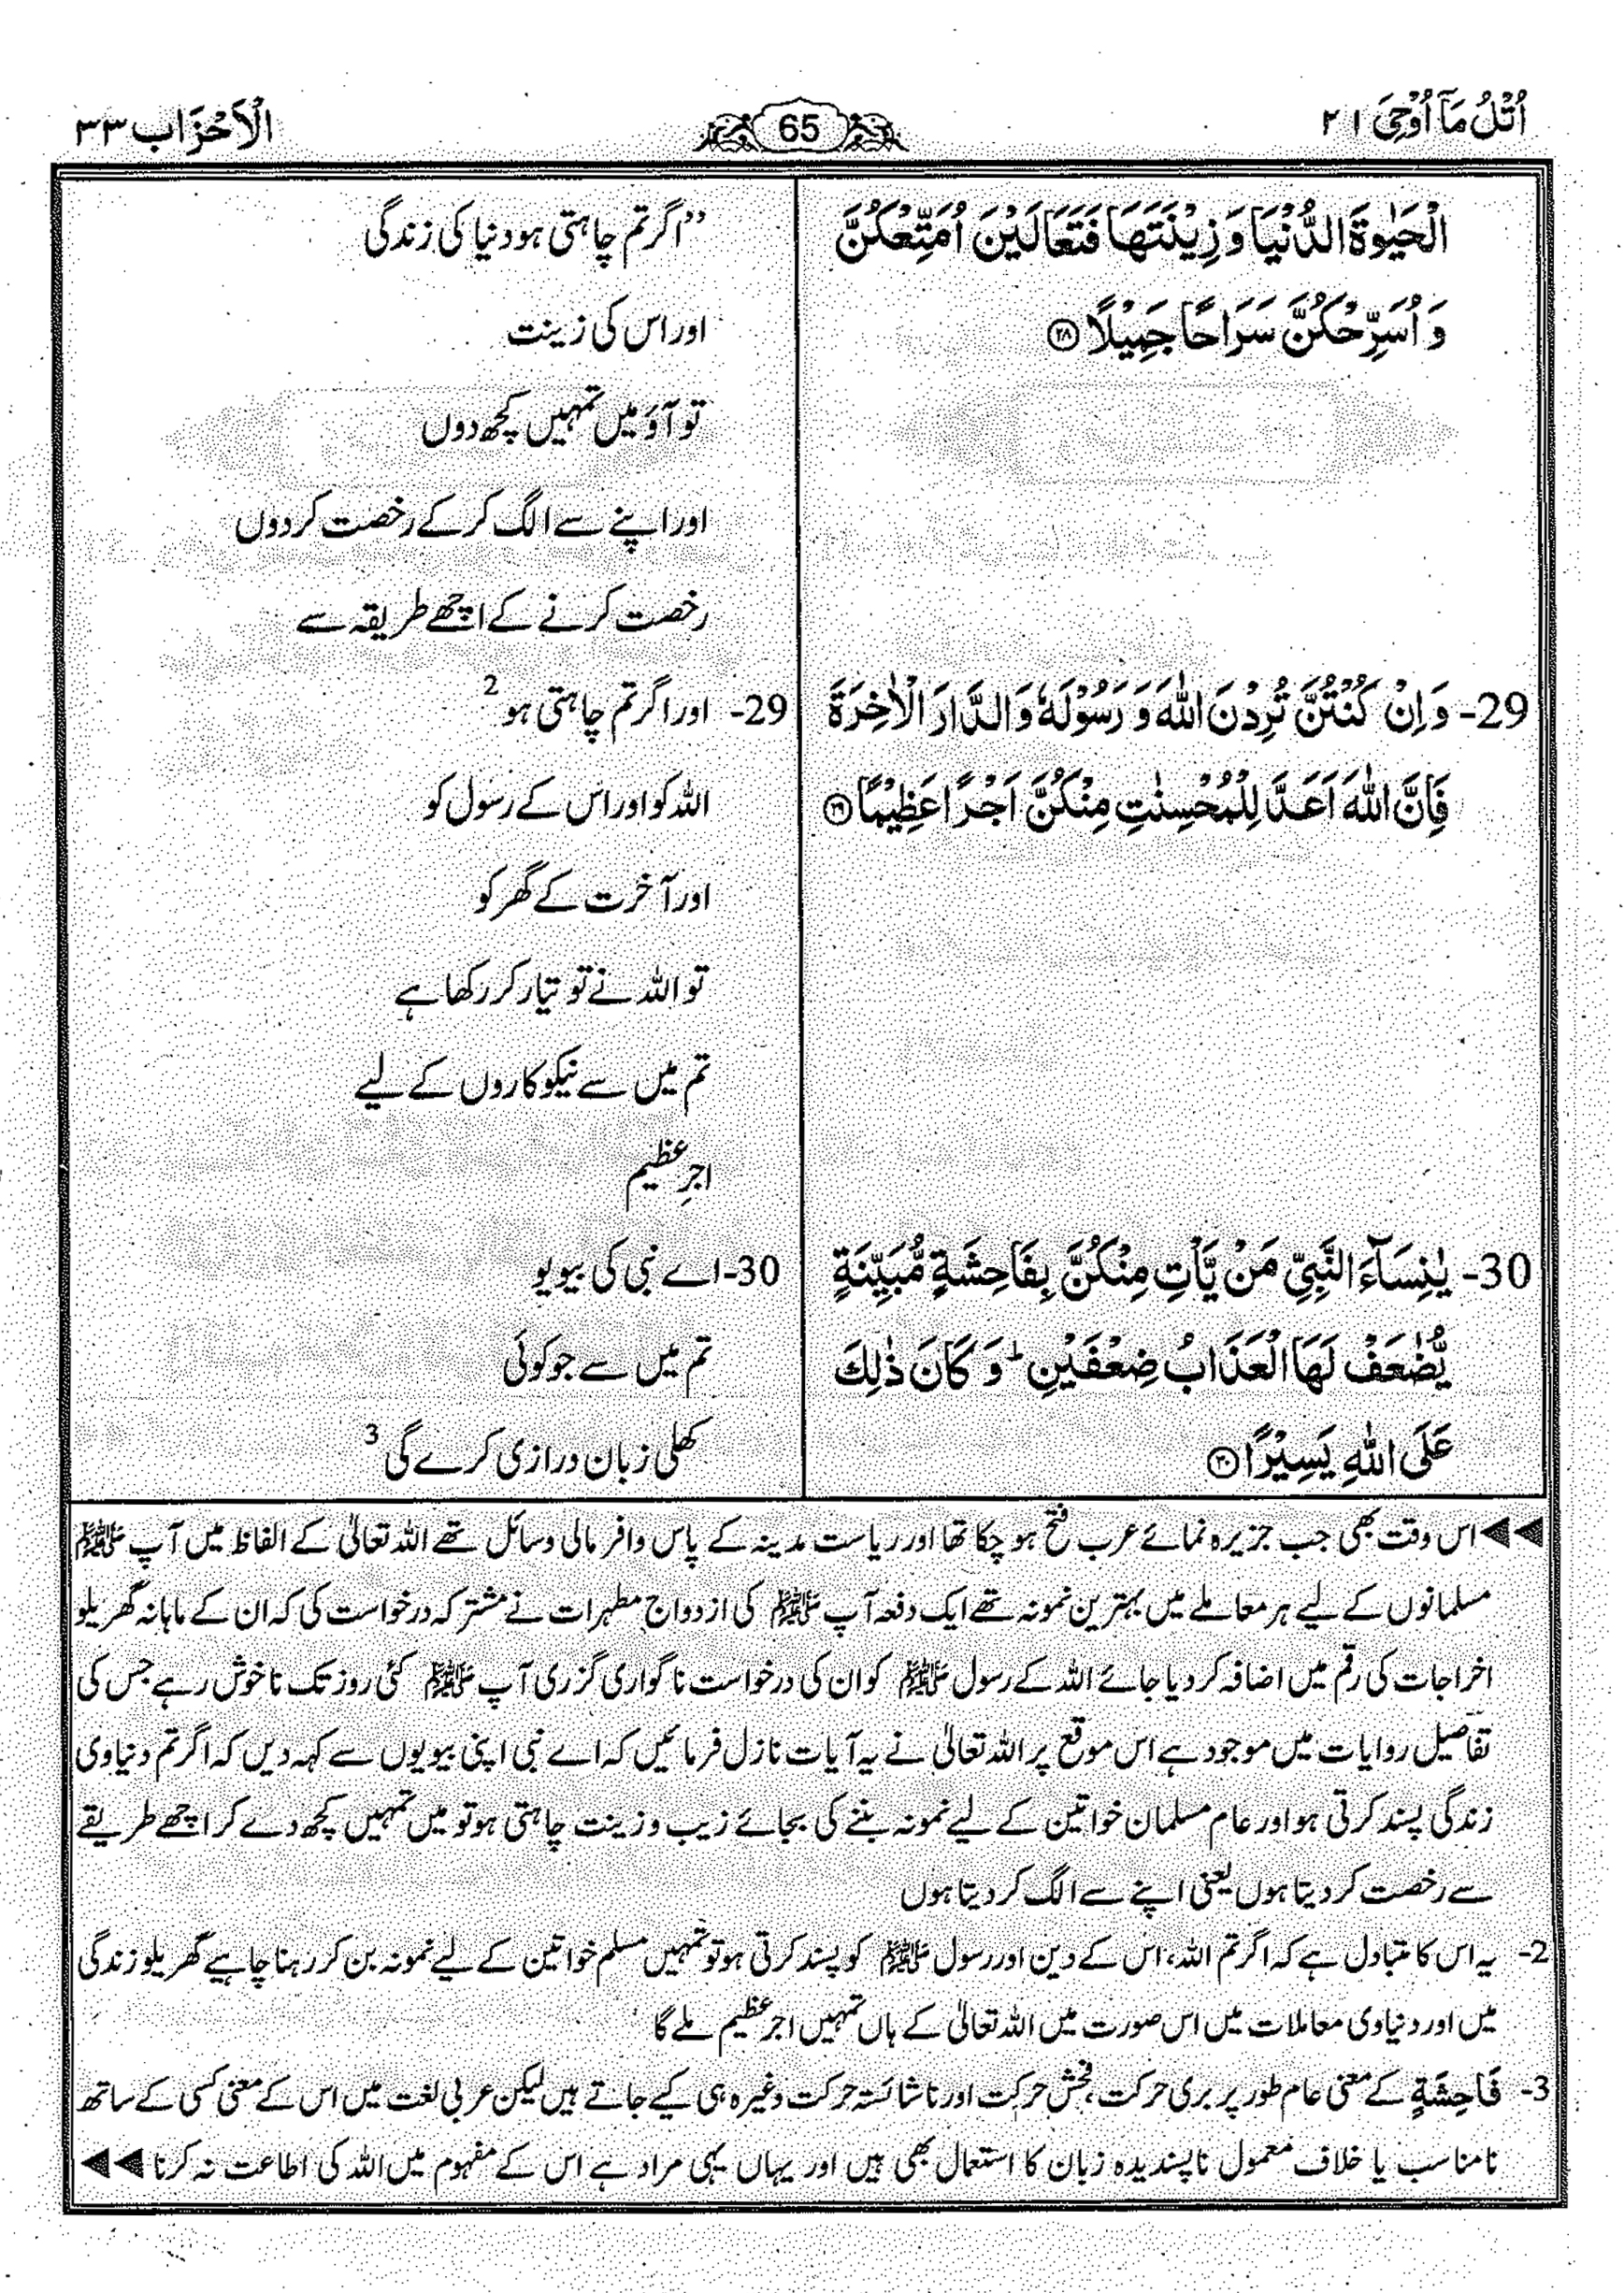 اُتْلُ مَآ اُوْحِیَ ۲۱
65
الْاَحْزَاب ۳۳
الْحَيٰوةَ الدُّنْيَا وَ زِيْنَتَهَا فَتَعَالَيْنَ اُمَتِّعْكُنَّ
وَ اُسَرِّحْكُنَّ سَرَاحًا جَمِيْلًا ۝۲۸
29- وَ اِنْ كُنْتُنَّ تُرِدْنَ اللّٰهَ وَ رَسُوْلَهٗ وَ الدَّارَ الْاٰخِرَةَ
فَاِنَّ اللّٰهَ اَعَدَّ لِلْمُحْسِنٰتِ مِنْكُنَّ اَجْرًا عَظِيْمًا ۝۲۹
30- يٰنِسَآءَ النَّبِيِّ مَنْ يَّاْتِ مِنْكُنَّ بِفَاحِشَةٍ مُّبَيِّنَةٍ
يُّضٰعَفْ لَهَا الْعَذَابُ ضِعْفَيْنِ ؕ وَ كَانَ ذٰلِكَ
عَلَى اللّٰهِ يَسِيْرًا ۝۳۰
”اگر تم چاہتی ہو دنیا کی زندگی
اور اس کی زینت
تو آؤ میں تمہیں کچھ دوں
اور اپنے سے الگ کر کے رخصت کر دوں
رخصت کرنے کے اچھے طریقہ سے
29- اور اگر تم چاہتی ہو 2
اللہ کو اور اس کے رسول کو
اور آخرت کے گھر کو
تو اللہ نے تو تیار کر رکھا ہے
تم میں سے نیکوکاروں کے لیے
اجرِ عظیم
30- اے نبی کی بیویو
تم میں سے جو کوئی
کھلی زبان درازی کرے گی 3
◄◄ اس وقت بھی جب جزیرہ نمائے عرب فتح ہو چکا تھا اور ریاست مدینہ کے پاس وافر مالی وسائل تھے اللہ تعالیٰ کے الفاظ میں آپ ﷺ
مسلمانوں کے لیے ہر معاملے میں بہترین نمونہ تھے ایک دفعہ آپ ﷺ کی ازدواج مطہرات نے مشترکہ درخواست کی کہ ان کے ماہانہ گھریلو
اخراجات کی رقم میں اضافہ کر دیا جائے اللہ کے رسول ﷺ کو ان کی درخواست ناگواری گزری آپ ﷺ کئی روز تک ناخوش رہے جس کی
تفاصیل روایات میں موجود ہے اس موقع پر اللہ تعالیٰ نے یہ آیات نازل فرمائیں کہ اے نبی اپنی بیویوں سے کہہ دیں کہ اگر تم دنیاوی
زندگی پسند کرتی ہو اور عام مسلمان خواتین کے لیے نمونہ بننے کی بجائے زیب و زینت چاہتی ہو تو میں تمہیں کچھ دے کر اچھے طریقے
سے رخصت کر دیتا ہوں یعنی اپنے سے الگ کر دیتا ہوں
2- یہ اس کا متبادل ہے کہ اگر تم اللہ، اس کے دین اور رسول ﷺ کو پسند کرتی ہو تو تمہیں مسلم خواتین کے لیے نمونہ بن کر رہنا چاہیے گھریلو زندگی
میں اور دنیاوی معاملات میں اس صورت میں اللہ تعالیٰ کے ہاں تمہیں اجر عظیم ملے گا
3- فَاحِشَةٍ کے معنی عام طور پر بری حرکت، فحش حرکت اور ناشائستہ حرکت وغیرہ ہی کیے جاتے ہیں لیکن عربی لغت میں اس کے معنی کسی کے ساتھ
نامناسب یا خلاف معمول ناپسندیدہ زبان کا استعمال بھی ہیں اور یہاں یہی مراد ہے اس کے مفہوم میں اللہ کی اطاعت نہ کرنا ◄◄